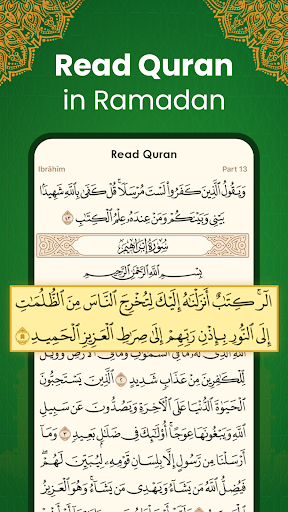 Read Quran
in Ramadan
Read Quran
Ibrāhīm
Part 13
وَيَقُولُ ٱلَّذِينَ كَفَرُوا۟ لَسْتَ مُرْسَلًا ۚ قُلْ كَفَىٰ بِٱللَّهِ شَهِيدًۢا
بَيْنِى وَبَيْنَكُمْ وَمَنْ عِندَهُۥ عِلْمُ ٱلْكِتَٰبِ ٤٣
سُورَةُ إِبْرَاهِيمَ
بِسْمِ ٱللَّهِ ٱلرَّحْمَٰنِ ٱلرَّحِيمِ
الٓر ۚ كِتَٰبٌ أَنزَلْنَٰهُ إِلَيْكَ لِتُخْرِجَ ٱلنَّاسَ مِنَ ٱلظُّلُمَٰتِ
إِلَى ٱلنُّورِ بِإِذْنِ رَبِّهِمْ إِلَىٰ صِرَٰطِ ٱلْعَزِيزِ ٱلْحَمِيدِ ١
لِّلْكَٰفِرِينَ مِنْ عَذَابٍ شَدِيدٍ ٢ ٱلَّذِينَ يَسْتَحِبُّونَ
ٱلْحَيَوٰةَ ٱلدُّنْيَا عَلَى ٱلْءَاخِرَةِ وَيَصُدُّونَ عَن سَبِيلِ
ٱللَّهِ وَيَبْغُونَهَا عِوَجًا ۚ أُو۟لَٰٓئِكَ فِى ضَلَٰلٍۭ بَعِيدٍ ٣ وَمَآ
أَرْسَلْنَا مِن رَّسُولٍ إِلَّا بِلِسَانِ قَوْمِهِۦ لِيُبَيِّنَ لَهُمْ ۖ
فَيُضِلُّ ٱللَّهُ مَن يَشَآءُ وَيَهْدِى مَن يَشَآءُ ۚ وَهُوَ ٱلْعَزِيزُ